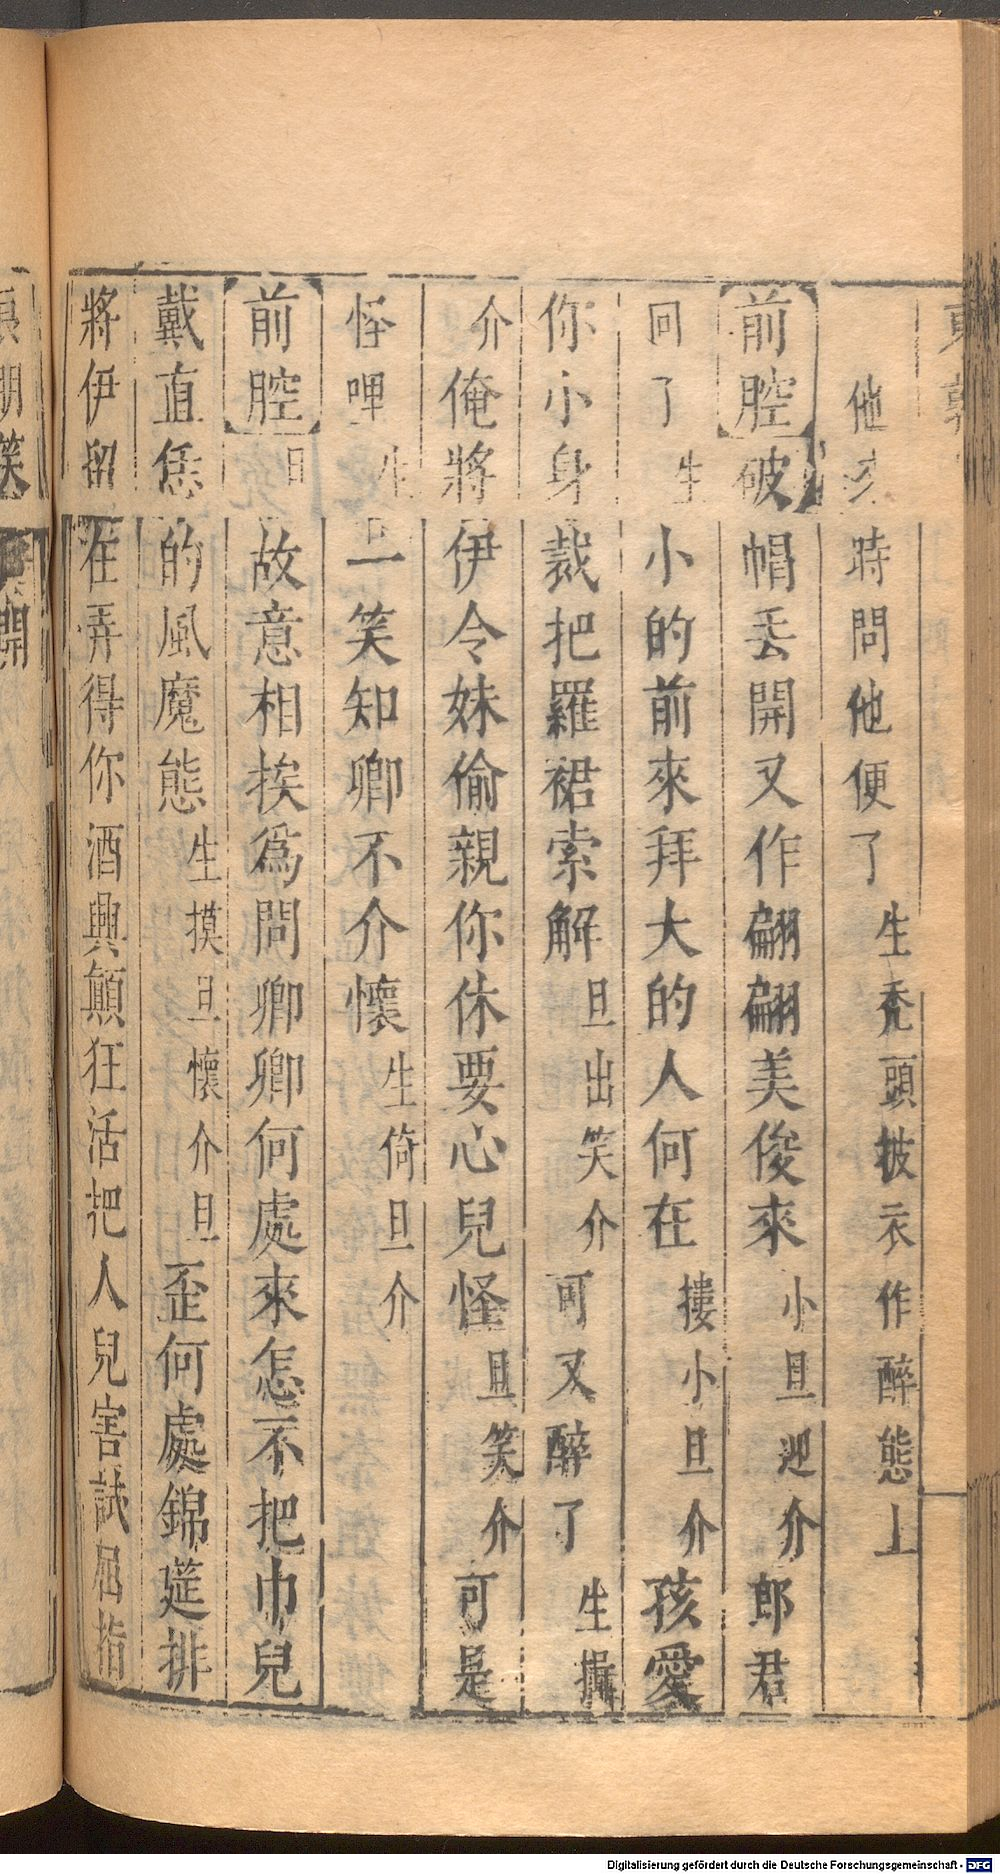 他 時問他便了生禿頭披衣作醉態上
前腔破帽丢開又作翩翩美俊來小旦迎介郎君
回了生小的前來拜大的人何在摟小旦介孩愛
你小身裁把羅裙索解旦出笑介可又醉了生摟
介俺將伊令妹偷親你休要心兒怪旦笑介可是
怪哩生一笑知卿不介懷生倚旦介
前腔旦故意相挨爲問卿卿何處來怎不把巾兒
戴直恁的風魔態生摸旦懷介旦歪何處錦筵排
將伊留在弄得你酒興顛狂活把人兒害試屈指
Digitalisierung gefördert durch die Deutsche Forschungsgemeinschaft - DFG